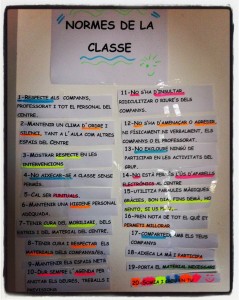 NORMES DE LA
CLASSE
1-RESPECTE ALS COMPANYS,
PROFESSORAT I TOT EL PERSONAL DEL
CENTRE.
2-MANTENIR UN CLIMA D'ORDRE I
SILENCI, TANT A L'AULA COM ALTRES
ESPAIS DEL CENTRE
3-MOSTRAR RESPECTE EN LES
INTERVENCIONS
4-NO AIXECAR-SE A CLASSE SENSE
PERMÍS
5-CAL SER PUNTUALS.
6-MANTENIR UNA HIGIENE PERSONAL
ADEQUADA.
7-TENIR CURA DEL MOBILIARI, DELS
ESPAIS I DEL MATERIAL DEL CENTRE.
8-TENIR CURA I RESPECTAR ELS
MATERIALS DELS COMPANYS/ES.
9-MANTENIR ELS ESPAIS NETS
10-DUR SEMPRE L'AGENDA PER
ANOTAR ELS DEURES, TREBALLS I
11-NO S'HA D'INSULTAR,
RIDICULITZAR O RIURE'S DELS
COMPANYS.
12-NO S'HA D'AMENAÇAR O AGREDIR
NI FÍSICAMENT NI VERBALMENT, ELS
COMPANYS O EL PROFESSORAT.
13-NO EXCLOURE NINGÚ DE
PARTICIPAR EN LES ACTIVITATS DEL
GRUP.
14-NO ESTÀ PERMÈS L'ÚS D'APARELLS
ELECTRÒNICS AL CENTRE
15-UTILITZA PARAULES MÀGIQUES
GRÀCIES, BON DIA, PERDÓ
SENTO, SI US PLAU
16-PREN NOTA DE TOT EL QUE ET
PERMETI MILLORAR
17-COMPARTEIX AMB ELS TEUS
COMPANYS
18-AIXECA LA MÀ I PARTICIPA
19-PORTA EL MATERIAL NECESSARI
20-SOMRIU